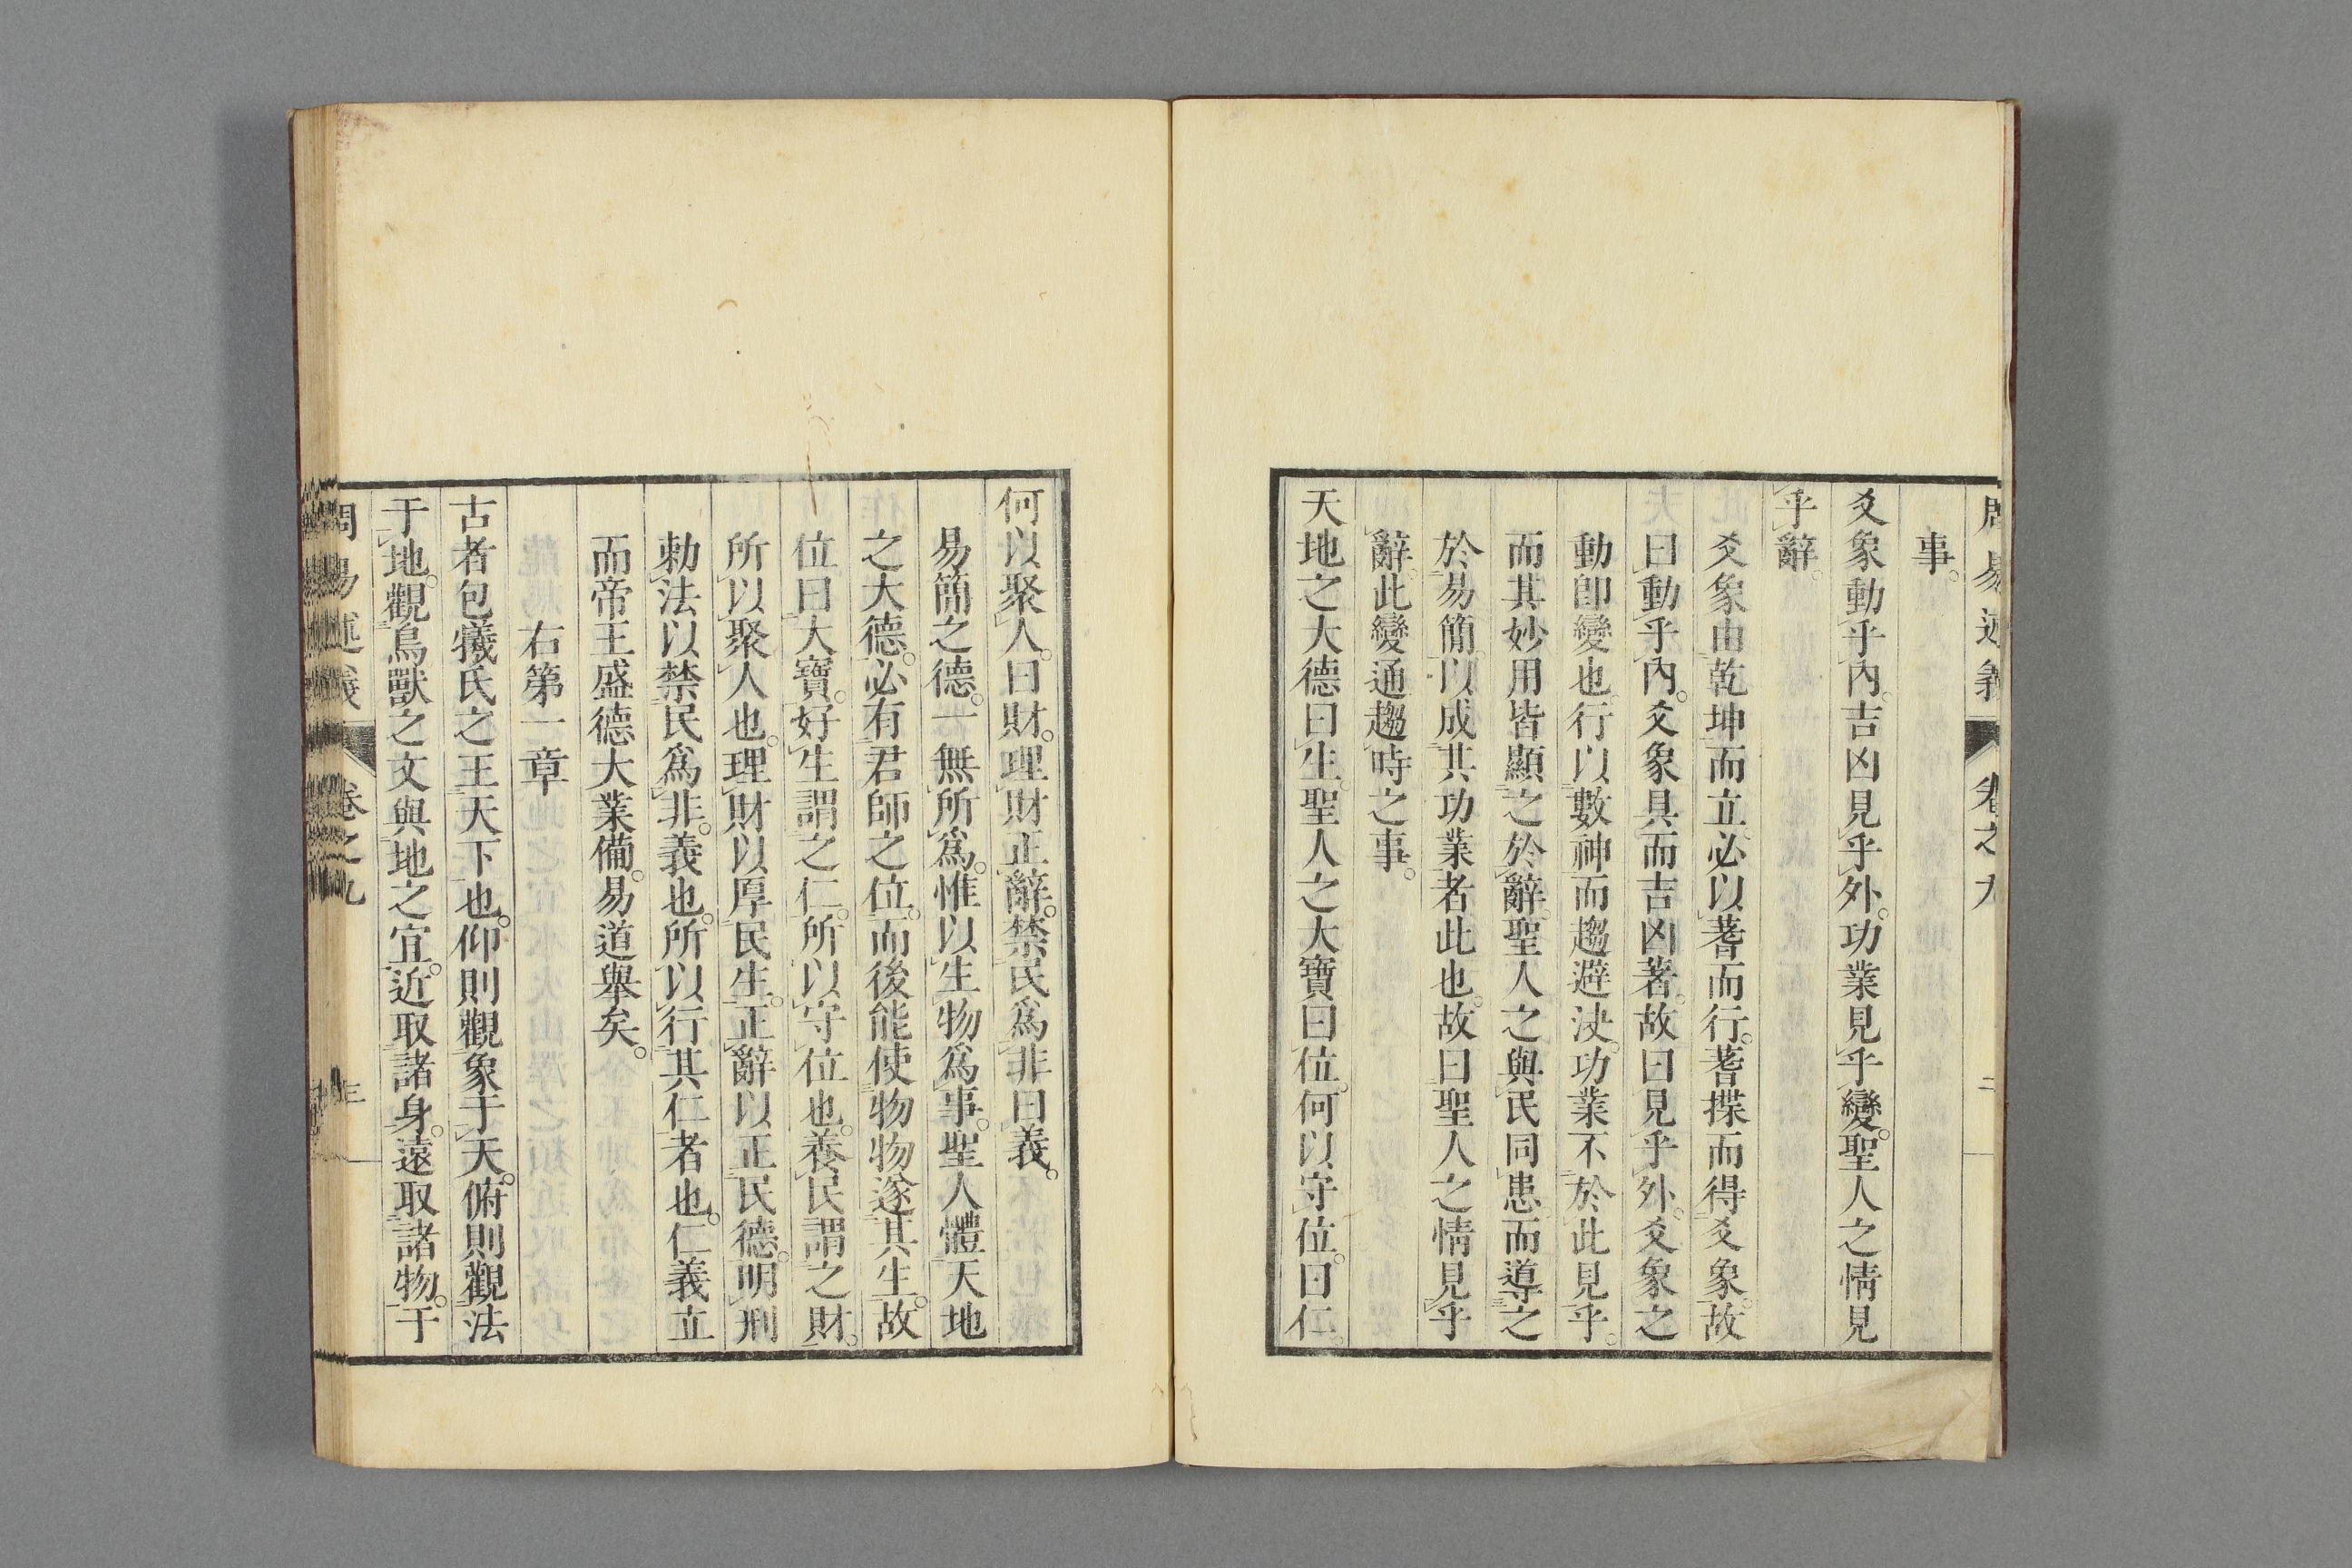 周易述義 卷之九 二
事。
爻象動乎內。吉凶見乎外。功業見乎變。聖人之情見
乎辭。
爻象由乾坤而立。必以蓍而行。蓍揲而得爻象。故
曰動乎內。爻象具而吉凶著。故曰見乎外。爻象之
動卽變也。行以數神而趨避決。功業不於此見乎。
而其妙用皆顯之於辭。聖人之與民同患。而導之
於易簡。以成其功業者此也。故曰聖人之情見乎
辭。此變通趨時之事。
天地之大德曰生。聖人之大寶曰位。何以守位。曰仁。
何以聚人。曰財。理財正辭。禁民爲非曰義。
易簡之德。一無所爲。惟以生物爲事。聖人體天地
之大德。必有君師之位。而後能使物物遂其生。故
位曰大寶。好生謂之仁。所以守位也。養民謂之財。
所以聚人也。理財以厚民生。正辭以正民德。明刑
勅法以禁民爲非。義也。所以行其仁者也。仁義立
而帝王盛德大業備。易道舉矣。
右第一章
古者包犧氏之王天下也。仰則觀象于天。俯則觀法
于地。觀鳥獸之文與地之宜。近取諸身。遠取諸物。于
周易述義 卷之九 三